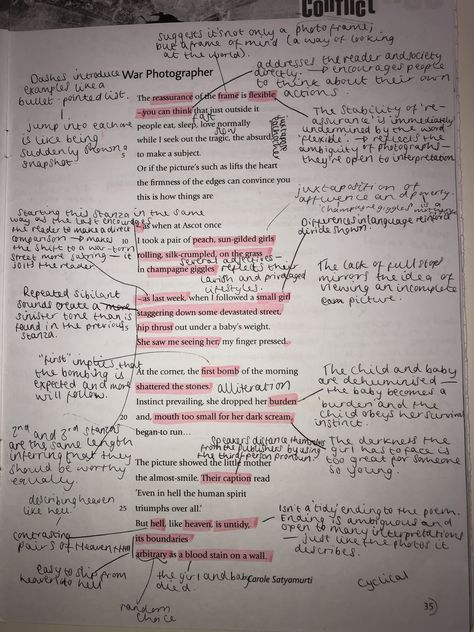 Conflict
suggests it's not only a photo frame,
but a frame of mind (a way of looking
at the world).
addresses the reader and society
directly. → encourages people
to think about their own
actions.
Dashes introduce
examples like a
bullet-pointed list.
Jump into eachother
is like being
suddenly shown a
snapshot.
War Photographer
The reassurance of the frame is flexible
– you can think that just outside it
people eat, sleep, love normally
fast
slow
while I seek out the tragic, the absurd,
5
to make a subject.
Or if the picture's such as lifts the heart
the firmness of the edges can convince you
this is how things are
The stability of 're-
assurance' is immediately
undermined by the word
'flexible'. → reflects the
ambiguity of photographs –
they're open to interpretation
juxtaposition of
affluence and poverty.
'champagne giggles' is a
Difference in language reinforces
divide shown.
Starting this stanza in the same
way as the last encourages
the reader to make a direct
comparison → makes
the shift to a war-torn
street more jarring – it
jolts the reader.
– as when at Ascot once
10
I took a pair of peach, sun-gilded girls
rolling, silk-crumpled, on the grass
several adjectives –
in champagne giggles
reflects their
lavish and privileged
lifestyles.
The lack of full stop
mirrors the idea of
viewing an incomplete
picture.
Repeated sibilant
sounds create a more
sinister tone than is
found in the previous
stanza.
– as last week, when I followed a small girl
staggering down some devastated street,
hip thrust out under a baby's weight.
She saw me seeing her; my finger pressed.
"first" implies that
the bombing is
expected and more
will follow.
At the corner, the first bomb of the morning
shattered the stones.
alliteration
Instinct prevailing, she dropped her burden
20
and, mouth too small for her dark scream,
began to run…
The child and baby
are dehumanised –
the baby becomes a
'burden' and the
child obeys her survival
instinct.
2nd and 3rd stanzas
are the same length
inferring that they
should be worthy
equally.
speakers distance themselves
from the publishers by using
the third person pronoun.
The darkness the
girl has to face is
too great for someone
so young.
The picture showed the little mother
the almost-smile. Their caption read
'Even in hell the human spirit
25
triumphs over all.'
But hell, like heaven, is untidy,
its boundaries
arbitrary as a blood stain on a wall.
describing heaven
like hell.
contrasting
pairs of heaven + hell
easy to slip from
heaven to hell
Isn't a 'tidy' ending to the poem.
Ending is ambiguous and
open to many interpretations
– just like the photos it
describes.
the girl and baby
died.
Carole Satyamurti
cyclical
random
choice
35